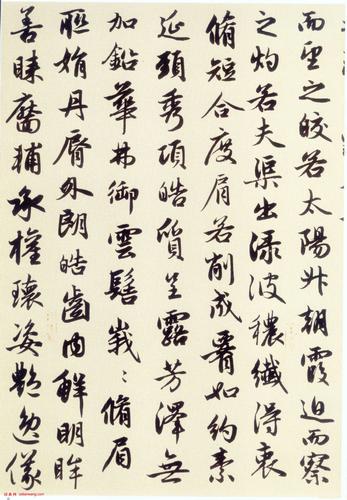 而望之皎若太陽升朝霞迫而察
之灼若夫渠出淥波穠纖得衷
脩短合度肩若削成腰如約素
延頸秀項皓質呈露芳澤無
加鉛華弗御雲髻峩〻脩眉
聯娟丹脣外朗皓齒内鮮明眸
善睞靨輔承權瓌姿艷逸儀
cidianwang.com